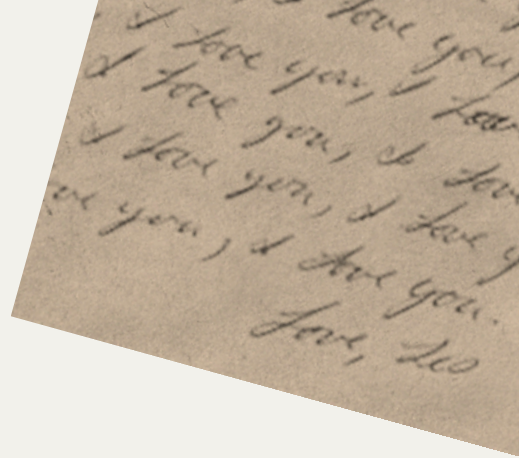 love you,
I love you, I love
I love you, I love
I love you, I love y
ve you, I love you.
Love, Leo